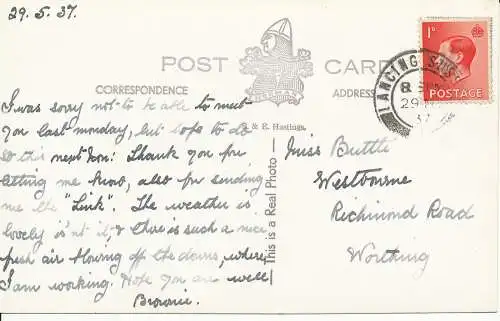 29.5.37.
POST CARD
CORRESPONDENCE
ADDRESS
1D
POSTAGE
LANCING
29
& E. Hastings.
This is a Real Photo
I was sorry not to be able to meet
you last monday, but hope to do
so this next Mon: Thank you for
letting me know, also for sending
me the "Link". The weather is
lovely is'nt it, & there is such a nice
fresh air blowing off the downs, where
I am working. Hope you are well
Brownie.
Miss Buttle
Westbourne
Richmond Road
Worthing